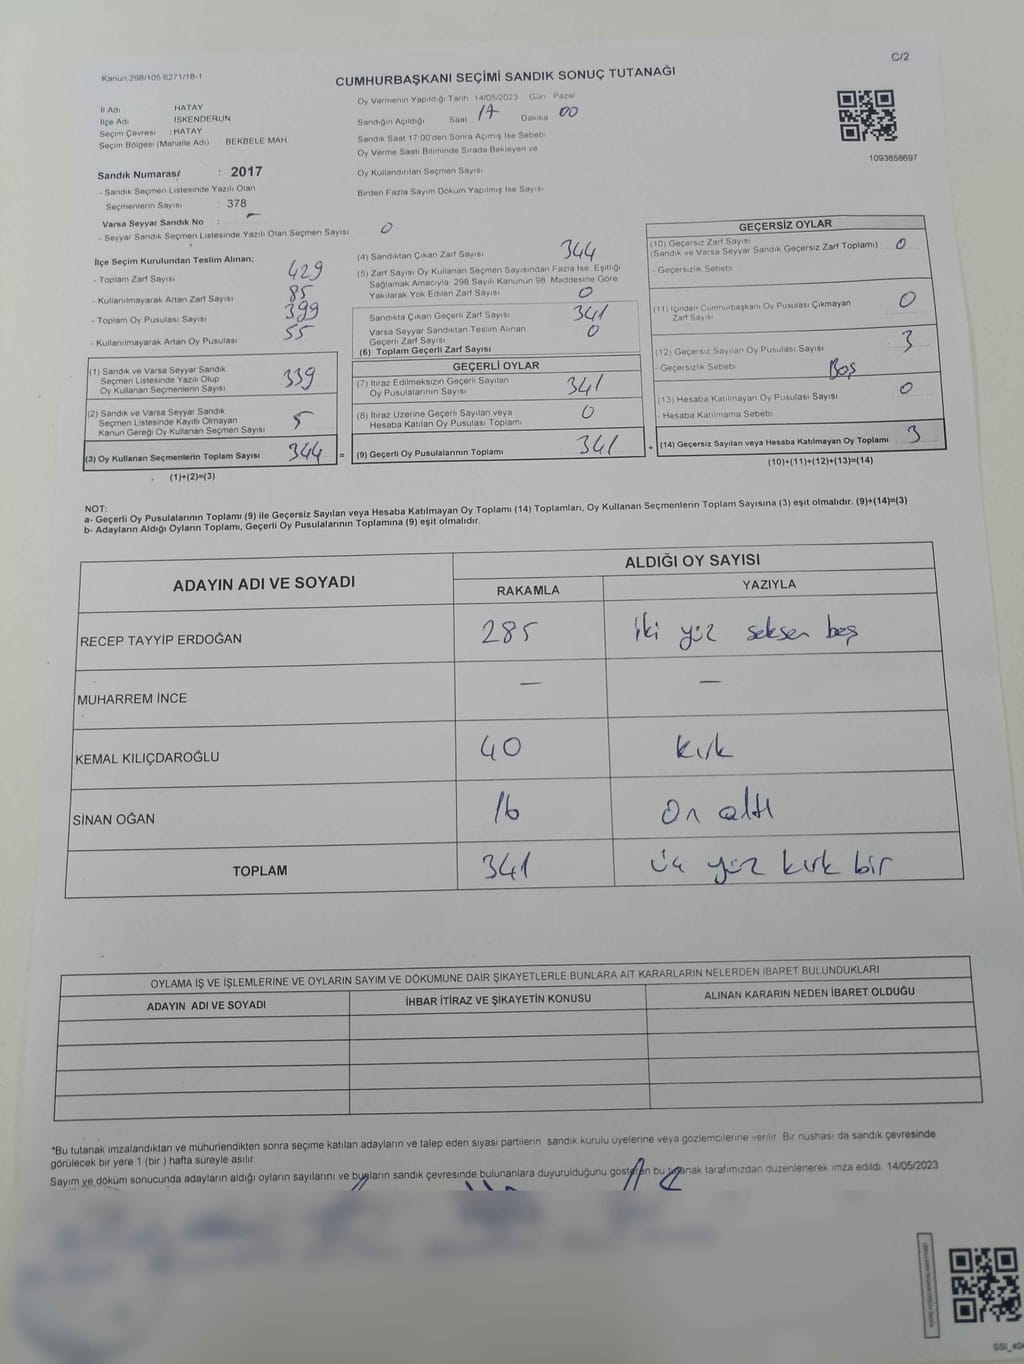 Kanun 298/105 6271/18-1
C/2
CUMHURBAŞKANI SEÇİMİ SANDIK SONUÇ TUTANAĞI
İl Adı HATAY
İlçe Adı İSKENDERUN
Seçim Çevresi : HATAY
Seçim Bölgesi (Mahalle Adı) BEKBELE MAH
Sandık Numarası : 2017
- Sandık Seçmen Listesinde Yazılı Olan
Seçmenlerin Sayısı : 378
Varsa Seyyar Sandık No : -
- Seyyar Sandık Seçmen Listesinde Yazılı Olan Seçmen Sayısı 0
Oy Vermenin Yapıldığı Tarih 14/05/2023 Gün Pazar
Sandığın Açıldığı Saat 17 Dakika 00
Sandık Saat 17 00'den Sonra Açılmış İse Sebebi
Oy Verme Saati Bitiminde Sırada Bekleyen ve
Oy Kullandırılan Seçmen Sayısı
Birden Fazla Sayım Döküm Yapılmış İse Sayısı
1093858697
İlçe Seçim Kurulundan Teslim Alınan;
- Toplam Zarf Sayısı 429
- Kullanılmayarak Artan Zarf Sayısı 85
- Toplam Oy Pusulası Sayısı 399
- Kullanılmayarak Artan Oy Pusulası 55
(1) Sandık ve Varsa Seyyar Sandık
Seçmen Listesinde Yazılı Olup
Oy Kullanan Seçmenlerin Sayısı 339
(2) Sandık ve Varsa Seyyar Sandık
Seçmen Listesinde Kayıtlı Olmayan
Kanun Gereği Oy Kullanan Seçmen Sayısı 5
(3) Oy Kullanan Seçmenlerin Toplam Sayısı 344 =
(1)+(2)=(3)
(4) Sandıktan Çıkan Zarf Sayısı 344
(5) Zarf Sayısı Oy Kullanan Seçmen Sayısından Fazla İse, Eşitliği
Sağlamak Amacıyla, 298 Sayılı Kanunun 98. Maddesine Göre
Yakılarak Yok Edilen Zarf Sayısı 0
Sandıkta Çıkan Geçerli Zarf Sayısı 341
Varsa Seyyar Sandıktan Teslim Alınan
Geçerli Zarf Sayısı 0
(6) Toplam Geçerli Zarf Sayısı
GEÇERLİ OYLAR
(7) İtiraz Edilmeksizin Geçerli Sayılan
Oy Pusulalarının Sayısı 341
(8) İtiraz Üzerine Geçerli Sayılan veya
Hesaba Katılan Oy Pusulası Toplamı 0
(9) Geçerli Oy Pusulalarının Toplamı 341 +
GEÇERSİZ OYLAR
(10) Geçersiz Zarf Sayısı
(Sandık ve Varsa Seyyar Sandık Geçersiz Zarf Toplamı) 0
- Geçersizlik Sebebi
(11) İçinden Cumhurbaşkanı Oy Pusulası Çıkmayan
Zarf Sayısı 0
(12) Geçersiz Sayılan Oy Pusulası Sayısı 3
- Geçersizlik Sebebi Boş
(13) Hesaba Katılmayan Oy Pusulası Sayısı 0
- Hesaba Katılmama Sebebi
(14) Geçersiz Sayılan veya Hesaba Katılmayan Oy Toplamı 3
(10)+(11)+(12)+(13)=(14)
NOT:
a- Geçerli Oy Pusulalarının Toplamı (9) ile Geçersiz Sayılan veya Hesaba Katılmayan Oy Toplamı (14) Toplamları, Oy Kullanan Seçmenlerin Toplam Sayısına (3) eşit olmalıdır. (9)+(14)=(3)
b- Adayların Aldığı Oyların Toplamı, Geçerli Oy Pusulalarının Toplamına (9) eşit olmalıdır.
ADAYIN ADI VE SOYADI ALDIĞI OY SAYISI
RAKAMLA YAZIYLA
RECEP TAYYİP ERDOĞAN 285 iki yüz seksen beş
MUHARREM İNCE — —
KEMAL KILIÇDAROĞLU 40 kırk
SİNAN OĞAN 16 on altı
TOPLAM 341 üç yüz kırk bir
OYLAMA İŞ VE İŞLEMLERİNE VE OYLARIN SAYIM VE DÖKÜMÜNE DAİR ŞİKAYETLERLE BUNLARA AİT KARARLARIN NELERDEN İBARET BULUNDUKLARI
ADAYIN ADI VE SOYADI İHBAR İTİRAZ VE ŞİKAYETİN KONUSU ALINAN KARARIN NEDEN İBARET OLDUĞU
*Bu tutanak imzalandıktan ve mühürlendikten sonra seçime katılan adayların ve talep eden siyasi partilerin sandık kurulu üyelerine veya gözlemcilerine verilir. Bir nüshası da sandık çevresinde
görülecek bir yere 1 (bir) hafta süreyle asılır.
Sayım ve döküm sonucunda adayların aldığı oyların sayılarını ve bunların sandık çevresinde bulunanlara duyurulduğunu gösteren bu tutanak tarafımızdan düzenlenerek imza edildi. 14/05/2023